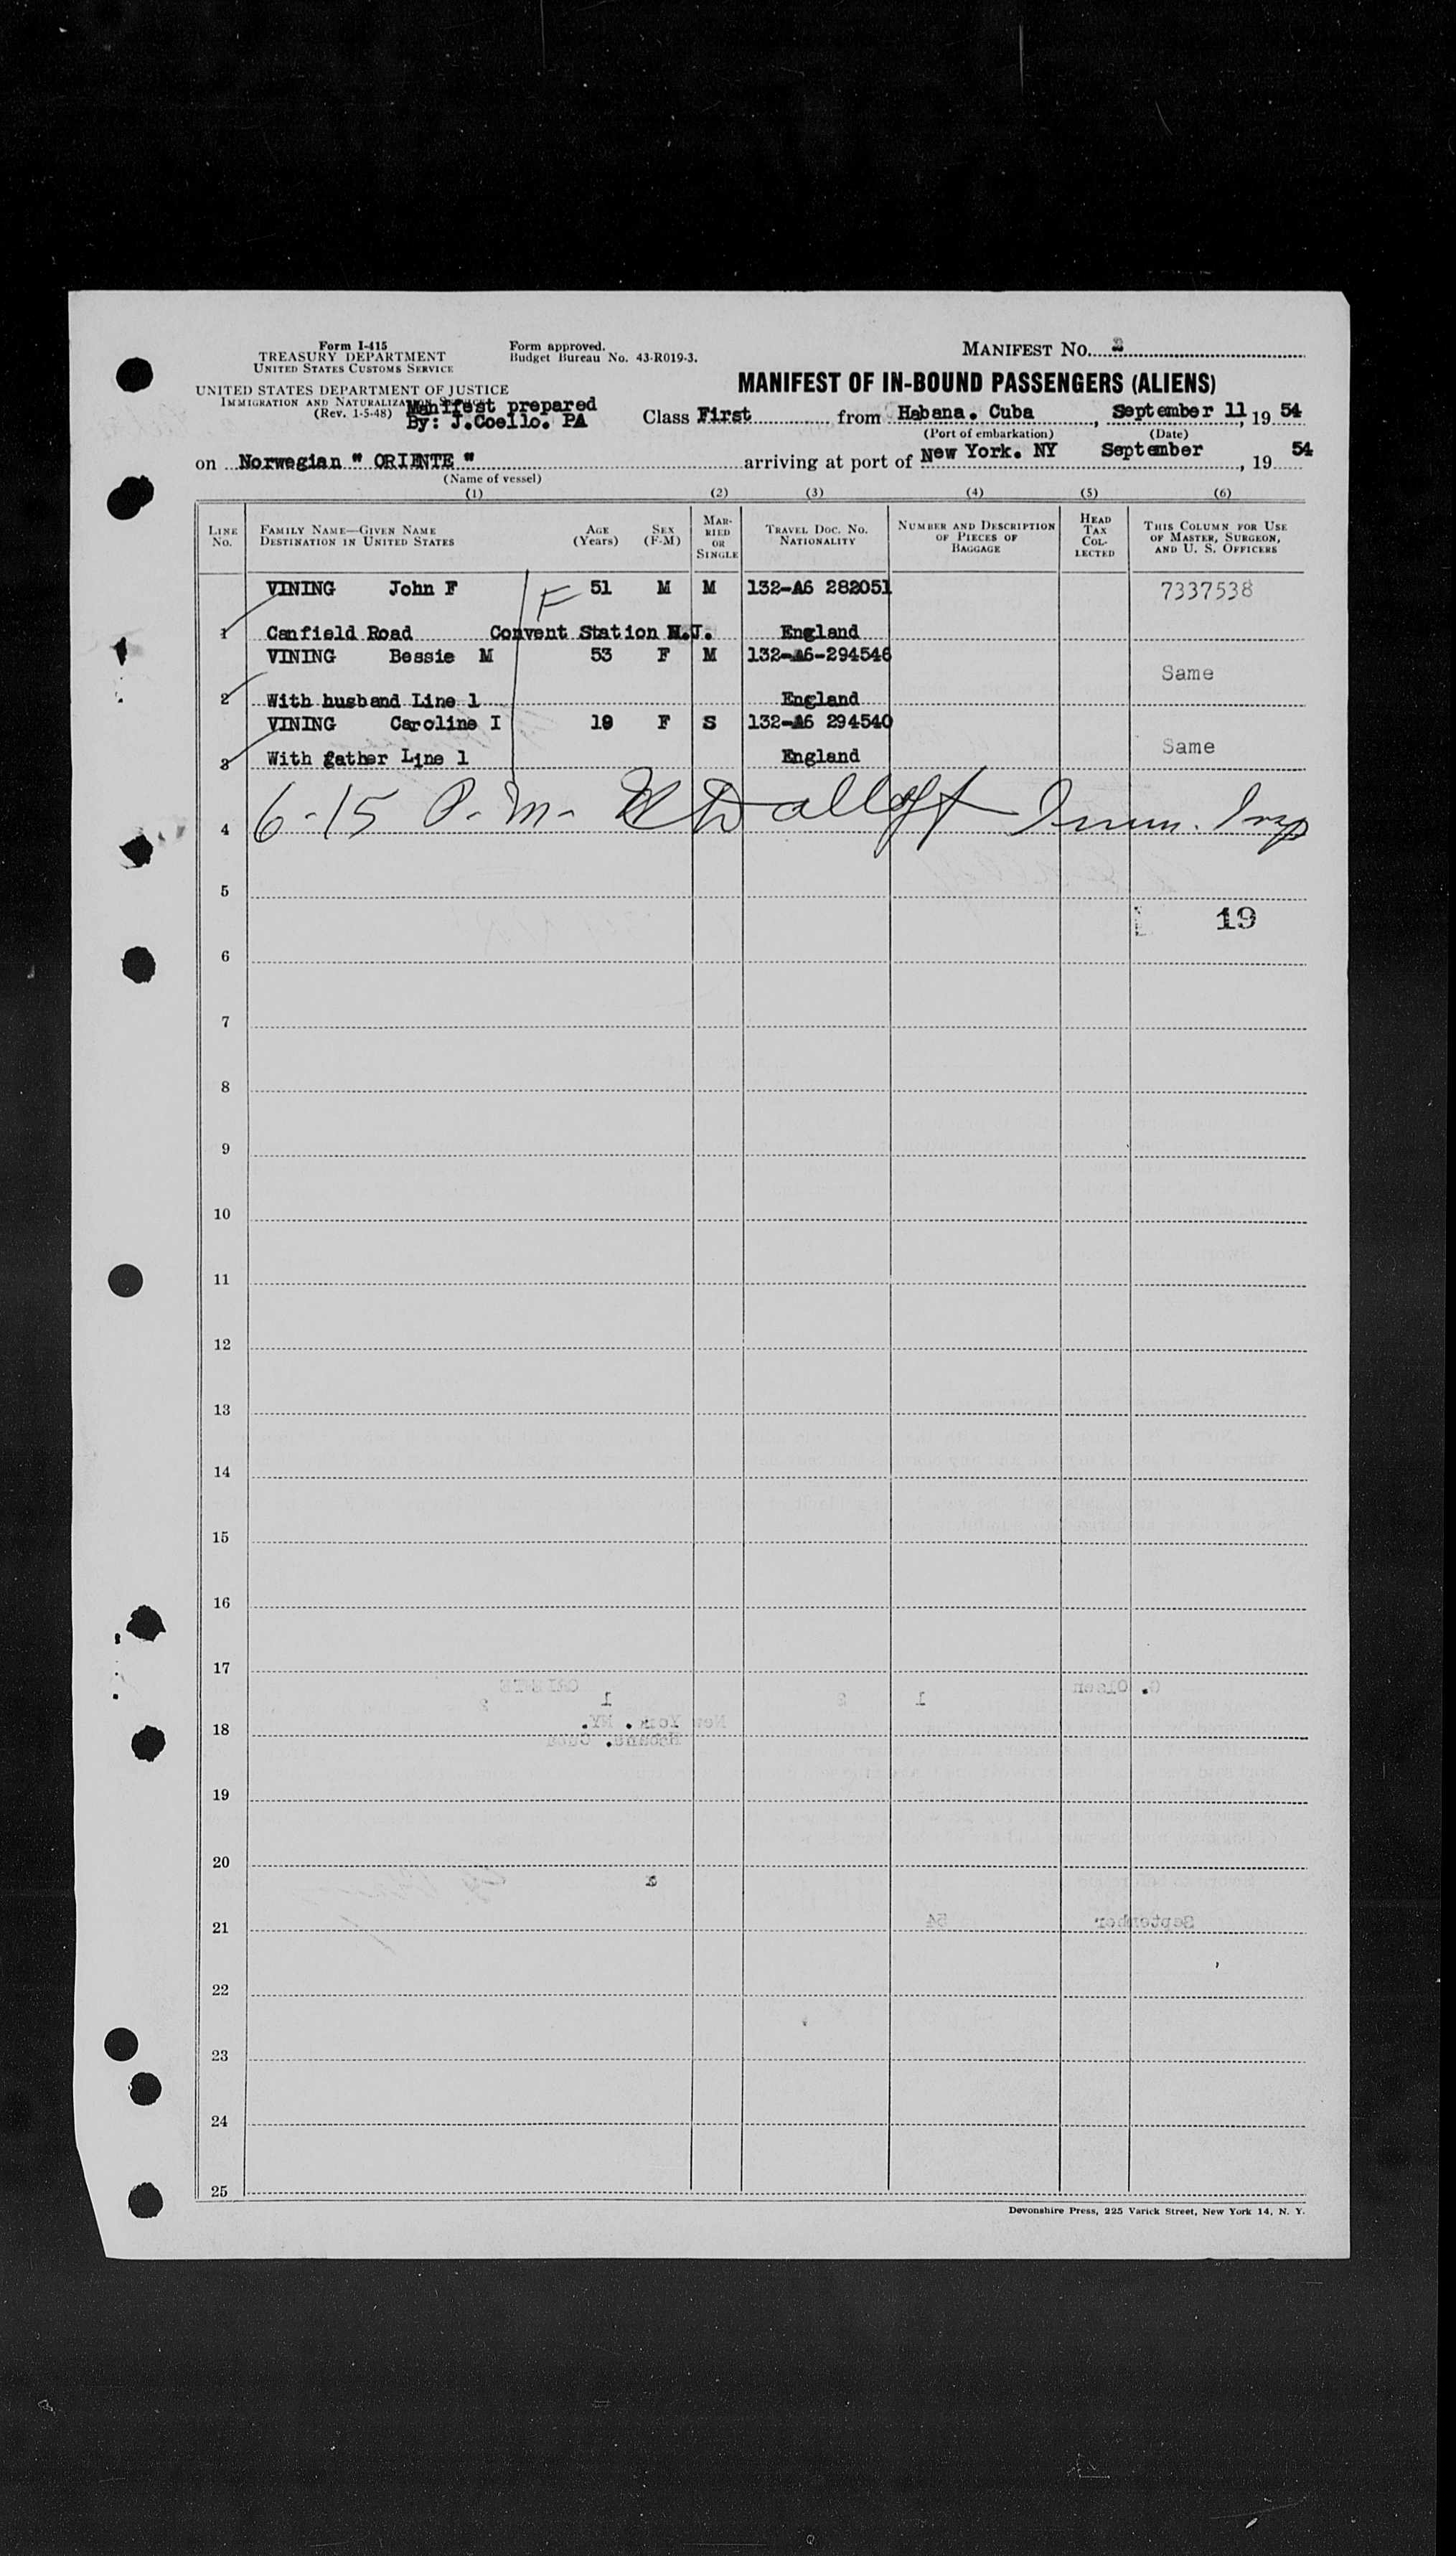 Form I-415
TREASURY DEPARTMENT
UNITED STATES CUSTOMS SERVICE
UNITED STATES DEPARTMENT OF JUSTICE
IMMIGRATION AND NATURALIZATION SERVICE
(Rev. 1-5-48)
Manifest prepared
By: J.Coello. PA
Form approved.
Budget Bureau No. 43-R019-3.
MANIFEST NO. 2
MANIFEST OF IN-BOUND PASSENGERS (ALIENS)
Class First from Habana. Cuba, September 11, 19 54
(Port of embarkation) (Date)
on Norwegian " ORIENTE " arriving at port of New York. NY September, 19 54
(Name of vessel)
(1) (2) (3) (4) (5) (6)
LINE NO. FAMILY NAME—GIVEN NAME DESTINATION IN UNITED STATES AGE (Years) SEX (F-M) MARRIED OR SINGLE TRAVEL DOC. NO. NATIONALITY NUMBER AND DESCRIPTION OF PIECES OF BAGGAGE HEAD TAX COLLECTED THIS COLUMN FOR USE OF MASTER, SURGEON, AND U. S. OFFICERS
VINING John F F 51 M M 132-A6 282051 7337538
1 Canfield Road Convent Station N.J. England
VINING Bessie M 53 F M 132-A6-294546 Same
2 With husband Line 1 England
VINING Caroline I 19 F S 132-A6 294540 Same
3 With father Line 1 England
4 6-15 P.M. Imm. Insp
5
19
6
7
8
9
10
11
12
13
14
15
16
17
18
19
20
21
22
23
24
25
Devonshire Press, 225 Varick Street, New York 14, N. Y.